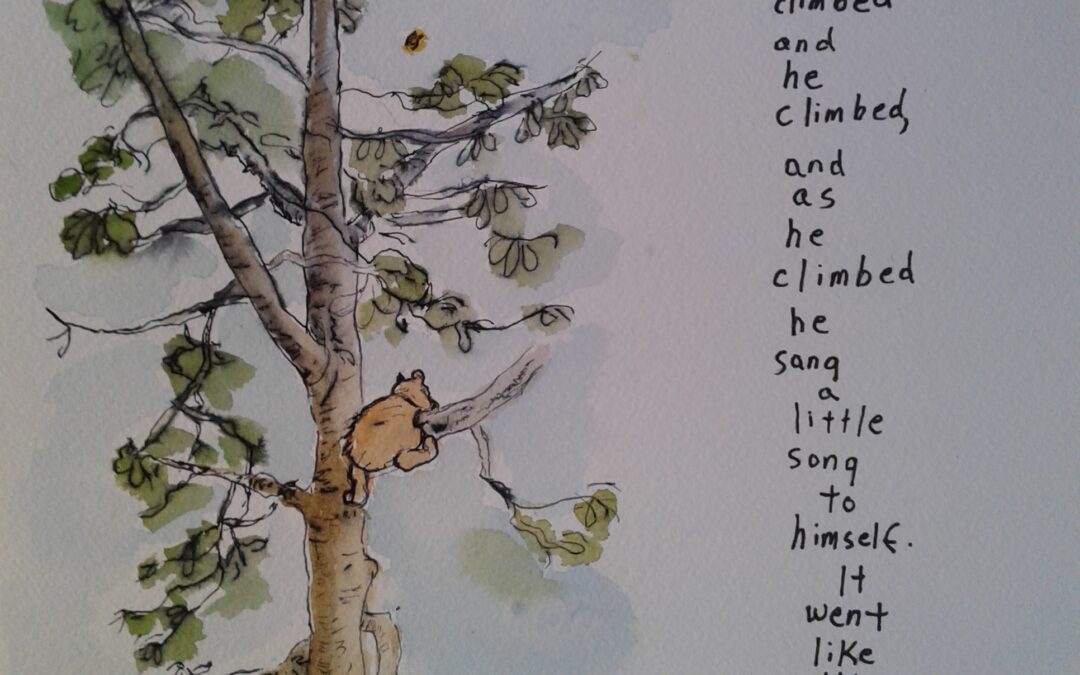 climbed
and
he
climbed,
and
as
he
climbed
he
sang
a
little
song
to
himself.
It
went
like